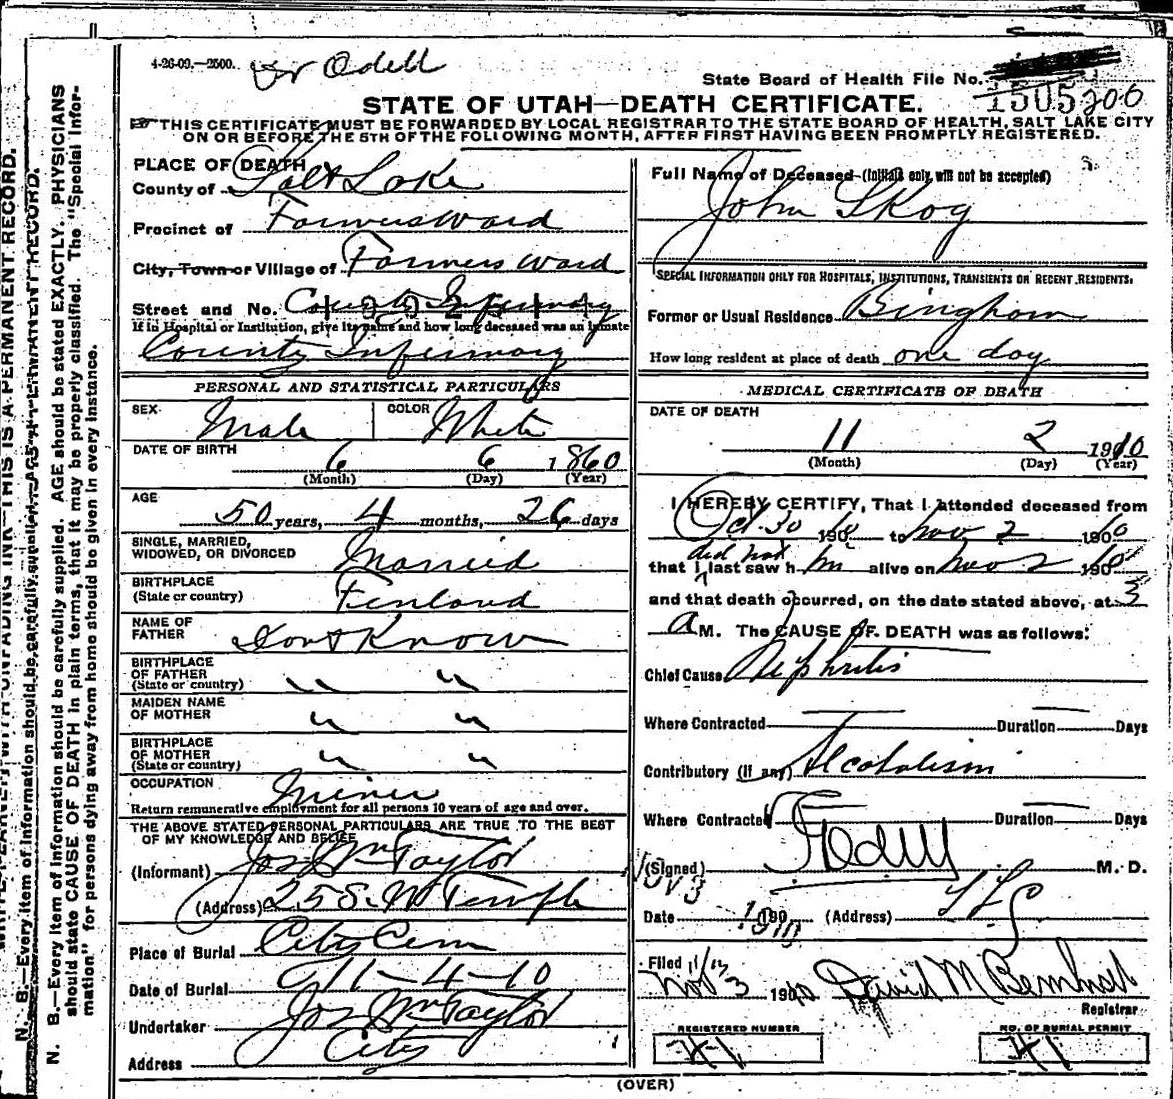 4-26-09.—2500.. Odell
State Board of Health File No.
1505 206
STATE OF UTAH—DEATH CERTIFICATE.
THIS CERTIFICATE MUST BE FORWARDED BY LOCAL REGISTRAR TO THE STATE BOARD OF HEALTH, SALT LAKE CITY
ON OR BEFORE THE 5TH OF THE FOLLOWING MONTH, AFTER FIRST HAVING BEEN PROMPTLY REGISTERED.
PLACE OF DEATH
County of Salt Lake
Precinct of Farmers Ward
City, Town or Village of Farmers Ward
Street and No. County Infirmary
If in Hospital or Institution, give its name and how long deceased was an inmate
County Infirmary
PERSONAL AND STATISTICAL PARTICULARS
SEX Male COLOR White
DATE OF BIRTH 6 6 1860
(Month) (Day) (Year)
AGE 50 years, 4 months, 26 days
SINGLE, MARRIED,
WIDOWED, OR DIVORCED Married
BIRTHPLACE
(State or country) Finland
NAME OF
FATHER Dont Know
BIRTHPLACE
OF FATHER
(State or country) " "
MAIDEN NAME
OF MOTHER " "
BIRTHPLACE
OF MOTHER
(State or country) " "
OCCUPATION Miner
Return remunerative employment for all persons 10 years of age and over.
THE ABOVE STATED PERSONAL PARTICULARS ARE TRUE TO THE BEST
OF MY KNOWLEDGE AND BELIEF
(Informant) Jos Wm Taylor
(Address) 25 S. W Temple
Place of Burial City Cem
Date of Burial 11-4-10
Undertaker Jos Wm Taylor
Address City
Full Name of Deceased (Initials only will not be accepted)
John Skog
SPECIAL INFORMATION ONLY FOR HOSPITALS, INSTITUTIONS, TRANSIENTS OR RECENT RESIDENTS.
Former or Usual Residence Bingham
How long resident at place of death one day
MEDICAL CERTIFICATE OF DEATH
DATE OF DEATH
11 2 1910
(Month) (Day) (Year)
I HEREBY CERTIFY, That I attended deceased from
Oct 30 1910 to Nov 2 1910
did not
that I last saw h im alive on Nov 2 1910
and that death occurred, on the date stated above, at 3
A M. The CAUSE OF DEATH was as follows:
Chief Cause Nephritis
Where Contracted Duration Days
Contributory (if any) Alcoholism
Where Contracted Duration Days
(Signed) M. D.
Nov 3
Date 1910 (Address) SLC
Filed Nov 3 1910 David M
Registrar
REGISTERED NUMBER NO. OF BURIAL PERMIT
H1 H1
(OVER)
N. B.—Every item of information should be carefully supplied. AGE should be stated EXACTLY. PHYSICIANS
should state CAUSE OF DEATH in plain terms, that it may be properly classified. The "Special Infor-
mation" for persons dying away from home should be given in every instance.